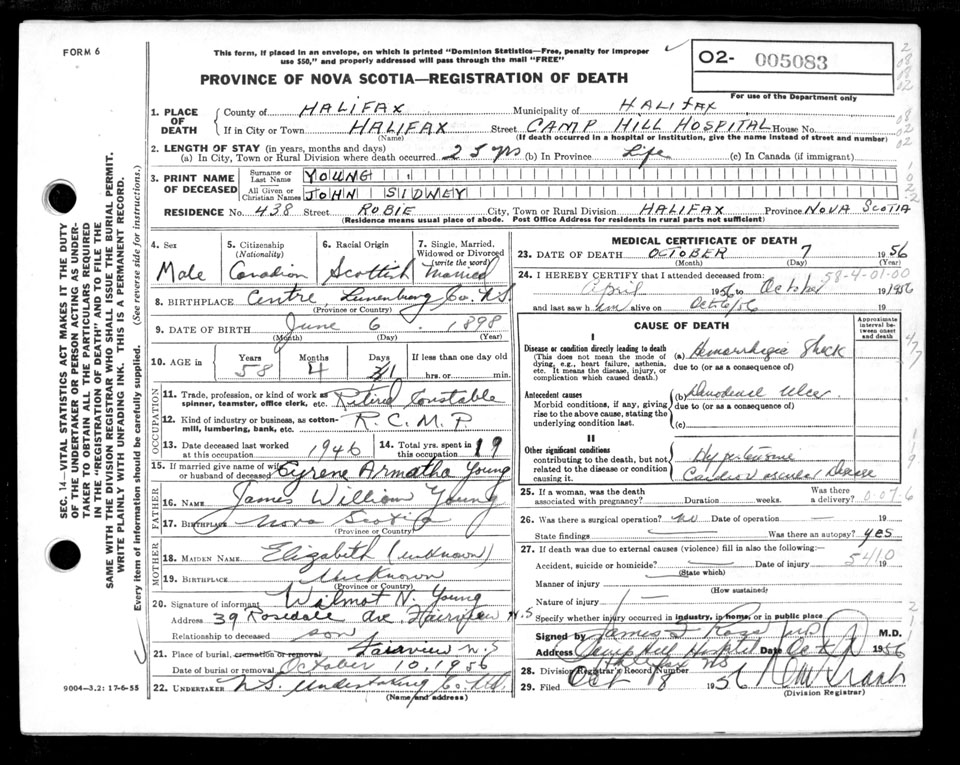 FORM 6
This form, if placed in an envelope, on which is printed "Dominion Statistics—Free, penalty for improper
use $50," and properly addressed will pass through the mail "FREE"
PROVINCE OF NOVA SCOTIA—REGISTRATION OF DEATH
02- 005083
For use of the Department only
1. PLACE OF DEATH
County of HALIFAX Municipality of HALIFAX
If in City or Town HALIFAX Street CAMP HILL HOSPITAL House No.
(Name) (If death occurred in a hospital or institution, give the name instead of street and number)
2. LENGTH OF STAY (in years, months and days)
(a) In City, Town or Rural Division where death occurred 25 yrs (b) In Province Life (c) In Canada (if immigrant)
3. PRINT NAME OF DECEASED
Surname or Last Name YOUNG
All Given or Christian Names JOHN SIDNEY
RESIDENCE No. 438 Street ROBIE City, Town or Rural Division HALIFAX Province NOVA SCOTIA
(Residence means usual place of abode. Post Office Address for residents in rural parts not sufficient)
4. Sex
Male
5. Citizenship (Nationality)
Canadian
6. Racial Origin
Scottish
7. Single, Married, Widowed or Divorced (write the word)
Married
8. BIRTHPLACE Centre, Lunenburg Co. N.S.
(Province or Country)
9. DATE OF BIRTH June 6 1898
(Month) (Day) (Year)
10. AGE in Years Months Days If less than one day old
58 4 1 hrs. or min.
OCCUPATION
11. Trade, profession, or kind of work as spinner, teamster, office clerk, etc. Retired Constable
12. Kind of industry or business, as cotton-mill, lumbering, bank, etc. R.C.M.P
13. Date deceased last worked at this occupation 1946
14. Total yrs. spent in 19
15. If married give name of wife or husband of deceased Cyrene Armatha Young
FATHER
16. NAME James William Young
17. BIRTHPLACE Nova Scotia
(Province or Country)
MOTHER
18. MAIDEN NAME Elizabeth (unknown)
19. BIRTHPLACE Unknown
(Province or Country)
20. Signature of informant Wilmot N. Young
Address 39 Rosedale Ave. Fairview N.S
Relationship to deceased son
21. Place of burial, cremation or removal Fairview N.S
Date of burial or removal October 10, 1956
22. UNDERTAKER N.S. Undertaking Co. Ltd.
(Name and address)
MEDICAL CERTIFICATE OF DEATH
23. DATE OF DEATH OCTOBER 7 1956
(Month) (Day) (Year)
58-4-01-00
24. I HEREBY CERTIFY that I attended deceased from
April 1956 to October 1956
and last saw him alive on Oct 6/56 19
CAUSE OF DEATH
Approximate interval between onset and death
I
Disease or condition directly leading to death
(This does not mean the mode of dying, e.g., heart failure, asthenia, etc. It means the disease, injury, or complication which caused death.)
(a) Hemorrhagic Shock
due to (or as a consequence of)
Antecedent causes
Morbid conditions, if any, giving rise to the above cause, stating the underlying condition last.
(b) Duodenal Ulcer
due to (or as a consequence of)
(c)
II
Other significant conditions
contributing to the death, but not related to the disease or condition causing it.
Hypertensive
Cardiovascular Disease
25. If a woman, was the death associated with pregnancy? Duration weeks. Was there a delivery?
0-07-6
26. Was there a surgical operation? no Date of operation — 19
State findings Was there an autopsy? yes
27. If death was due to external causes (violence) fill in also the following:—
5410
Accident, suicide or homicide? Date of injury 19
(State which)
Manner of injury
(How sustained)
Nature of injury
Specify whether injury occurred in industry, in home, or in public place
Signed by James F Ross M.D.
Address Camp Hill Hospital Date Oct 1956
Halifax NS
28. Division Registrar's Record Number
29. Filed Oct 8 1956
(Division Registrar)
9004—3.2: 17-6-55
SEC. 14—VITAL STATISTICS ACT MAKES IT THE DUTY
OF THE UNDERTAKER OR PERSON ACTING AS UNDER-
TAKER TO OBTAIN ALL THE PARTICULARS REQUIRED
IN THE "REGISTRATION OF DEATH" AND TO FILE THE
SAME WITH THE DIVISION REGISTRAR WHO SHALL ISSUE THE BURIAL PERMIT.
WRITE PLAINLY WITH UNFADING INK. THIS IS A PERMANENT RECORD.
Every item of information should be carefully supplied. (See reverse side for instructions.)